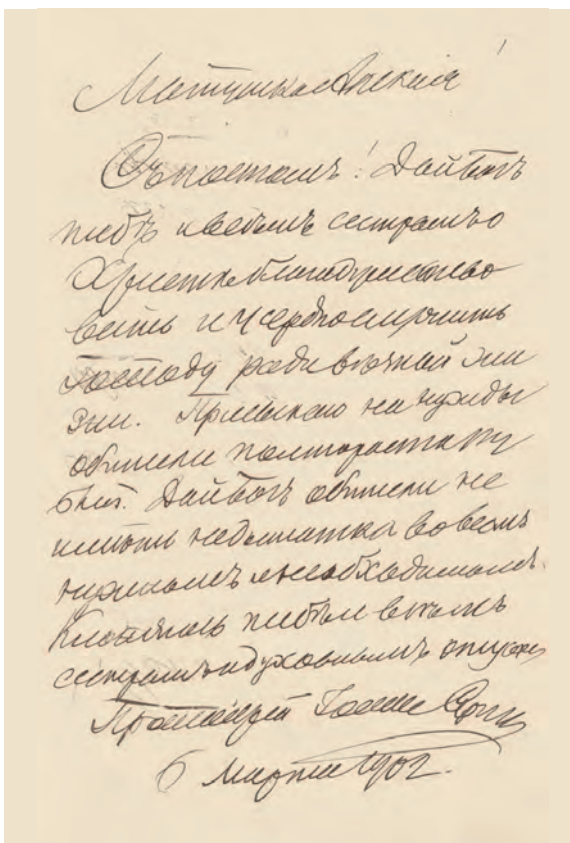 1
Матушка Ангелина
Съ постомъ! Дай Богъ
тебѣ и всѣмъ сестрамъ о
Христѣ благодушество
вать и усердно служить
Господу ради вѣчной жи
зни. Присылаю на нужды
обители полтораста ру
блей. Дай Богъ обители не
имѣть недостатка во всемъ
нужномъ и необходимомъ.
Кланяюсь тебѣ и всѣмъ
сестрамъ и духовнымъ отцамъ
Протоіерей Іоаннъ Сергіевъ
6 Марта 1902.